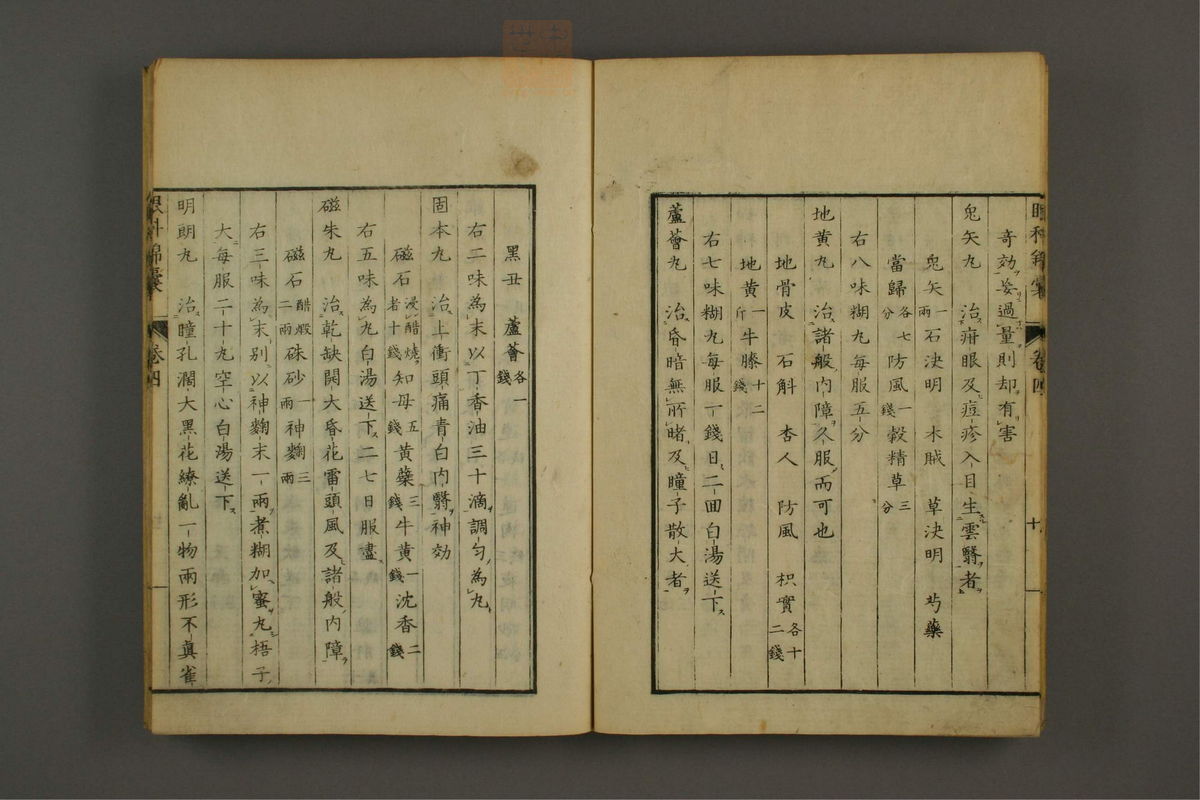 眼科錦囊 卷四 十
奇効妄過量則却有害
兎矢丸 治疳眼及痘疹入目生雲翳者
兎矢一兩 石决明 木賊 草决明 芍藥
當歸各七分 防風一錢 穀精草三分
右八味糊丸每服五分
地黃丸 治諸般內障久服而可也
地骨皮 石斛 杏人 防風 枳實各十二錢
地黃一斤 牛膝十二錢
右七味糊丸每服一錢日二回白湯送下
蘆薈丸 治昏暗無所睹及瞳子散大者
黑丑 蘆薈各一錢
右二味為末以丁香油三十滴調勻為丸
固本丸 治上衝頭痛青白內翳神効
磁石浸醋燒者十錢 知母五錢 黃蘗三錢 牛黃一錢 沈香二錢
右五味為丸白湯送下二七日服盡
磁朱丸 治乾缺開大昏花雷頭風及諸般內障
磁石醋煅二兩 硃砂一兩 神麴三兩
右三味為末別以神麴末一兩煮糊加蜜丸梧子
大每服二十丸空心白湯送下
明朗丸 治瞳孔濶大黑花繚亂一物兩形不眞雀
眼科錦囊 卷四